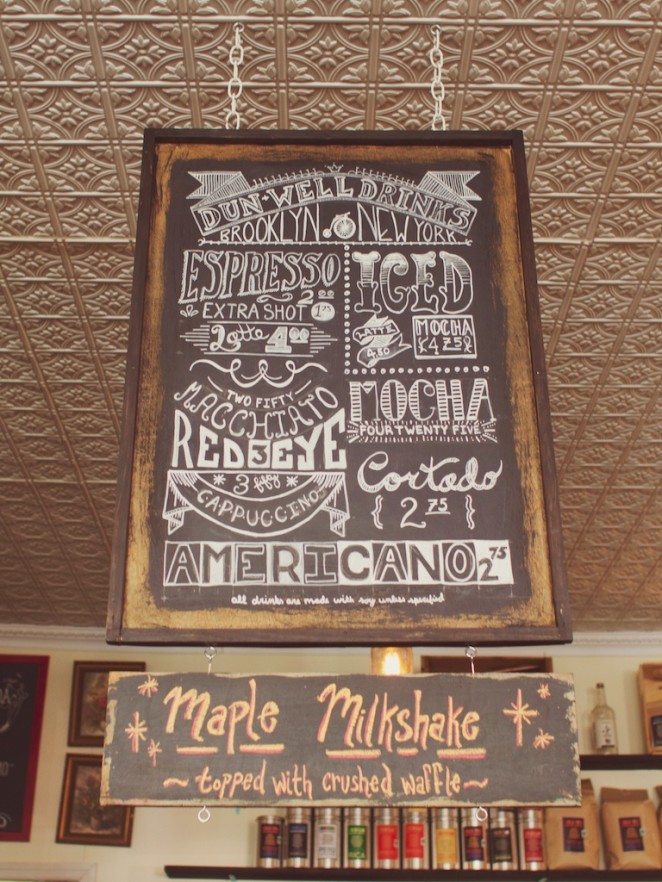 DUN-WELL DRINKS
BROOKLYN NEW YORK
ESPRESSO
2 00
EXTRA SHOT 1 25
Latte 4 00
TWO FIFTY
MACCHIATO
RED 3 EYE
3 fifty
CAPPUCCINO
ICED
LATTE
4.50
MOCHA
4 75
MOCHA
FOUR TWENTY FIVE
Cortado
{ 2 75 }
AMERICANO 2 75
all drinks are made with soy unless specified
Maple Milkshake
~topped with crushed waffle~